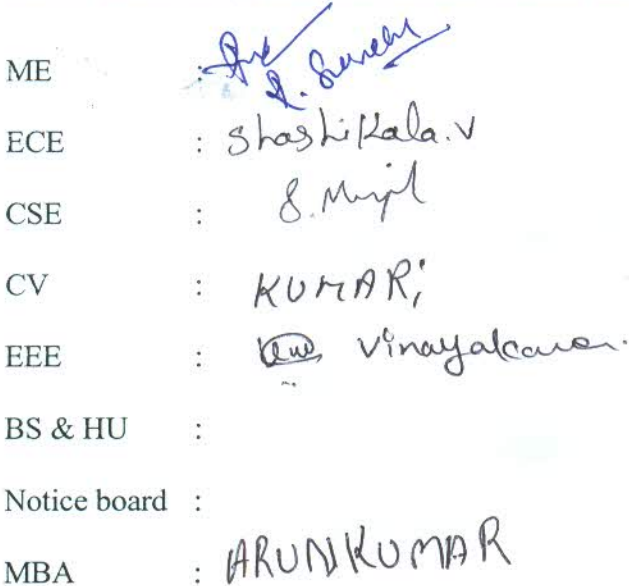 ME :
ECE : Shashikala.V
CSE : S.
CV : KUMARi
EEE : Vinayakan.
BS & HU :
Notice board :
MBA : ARUNKUMAR